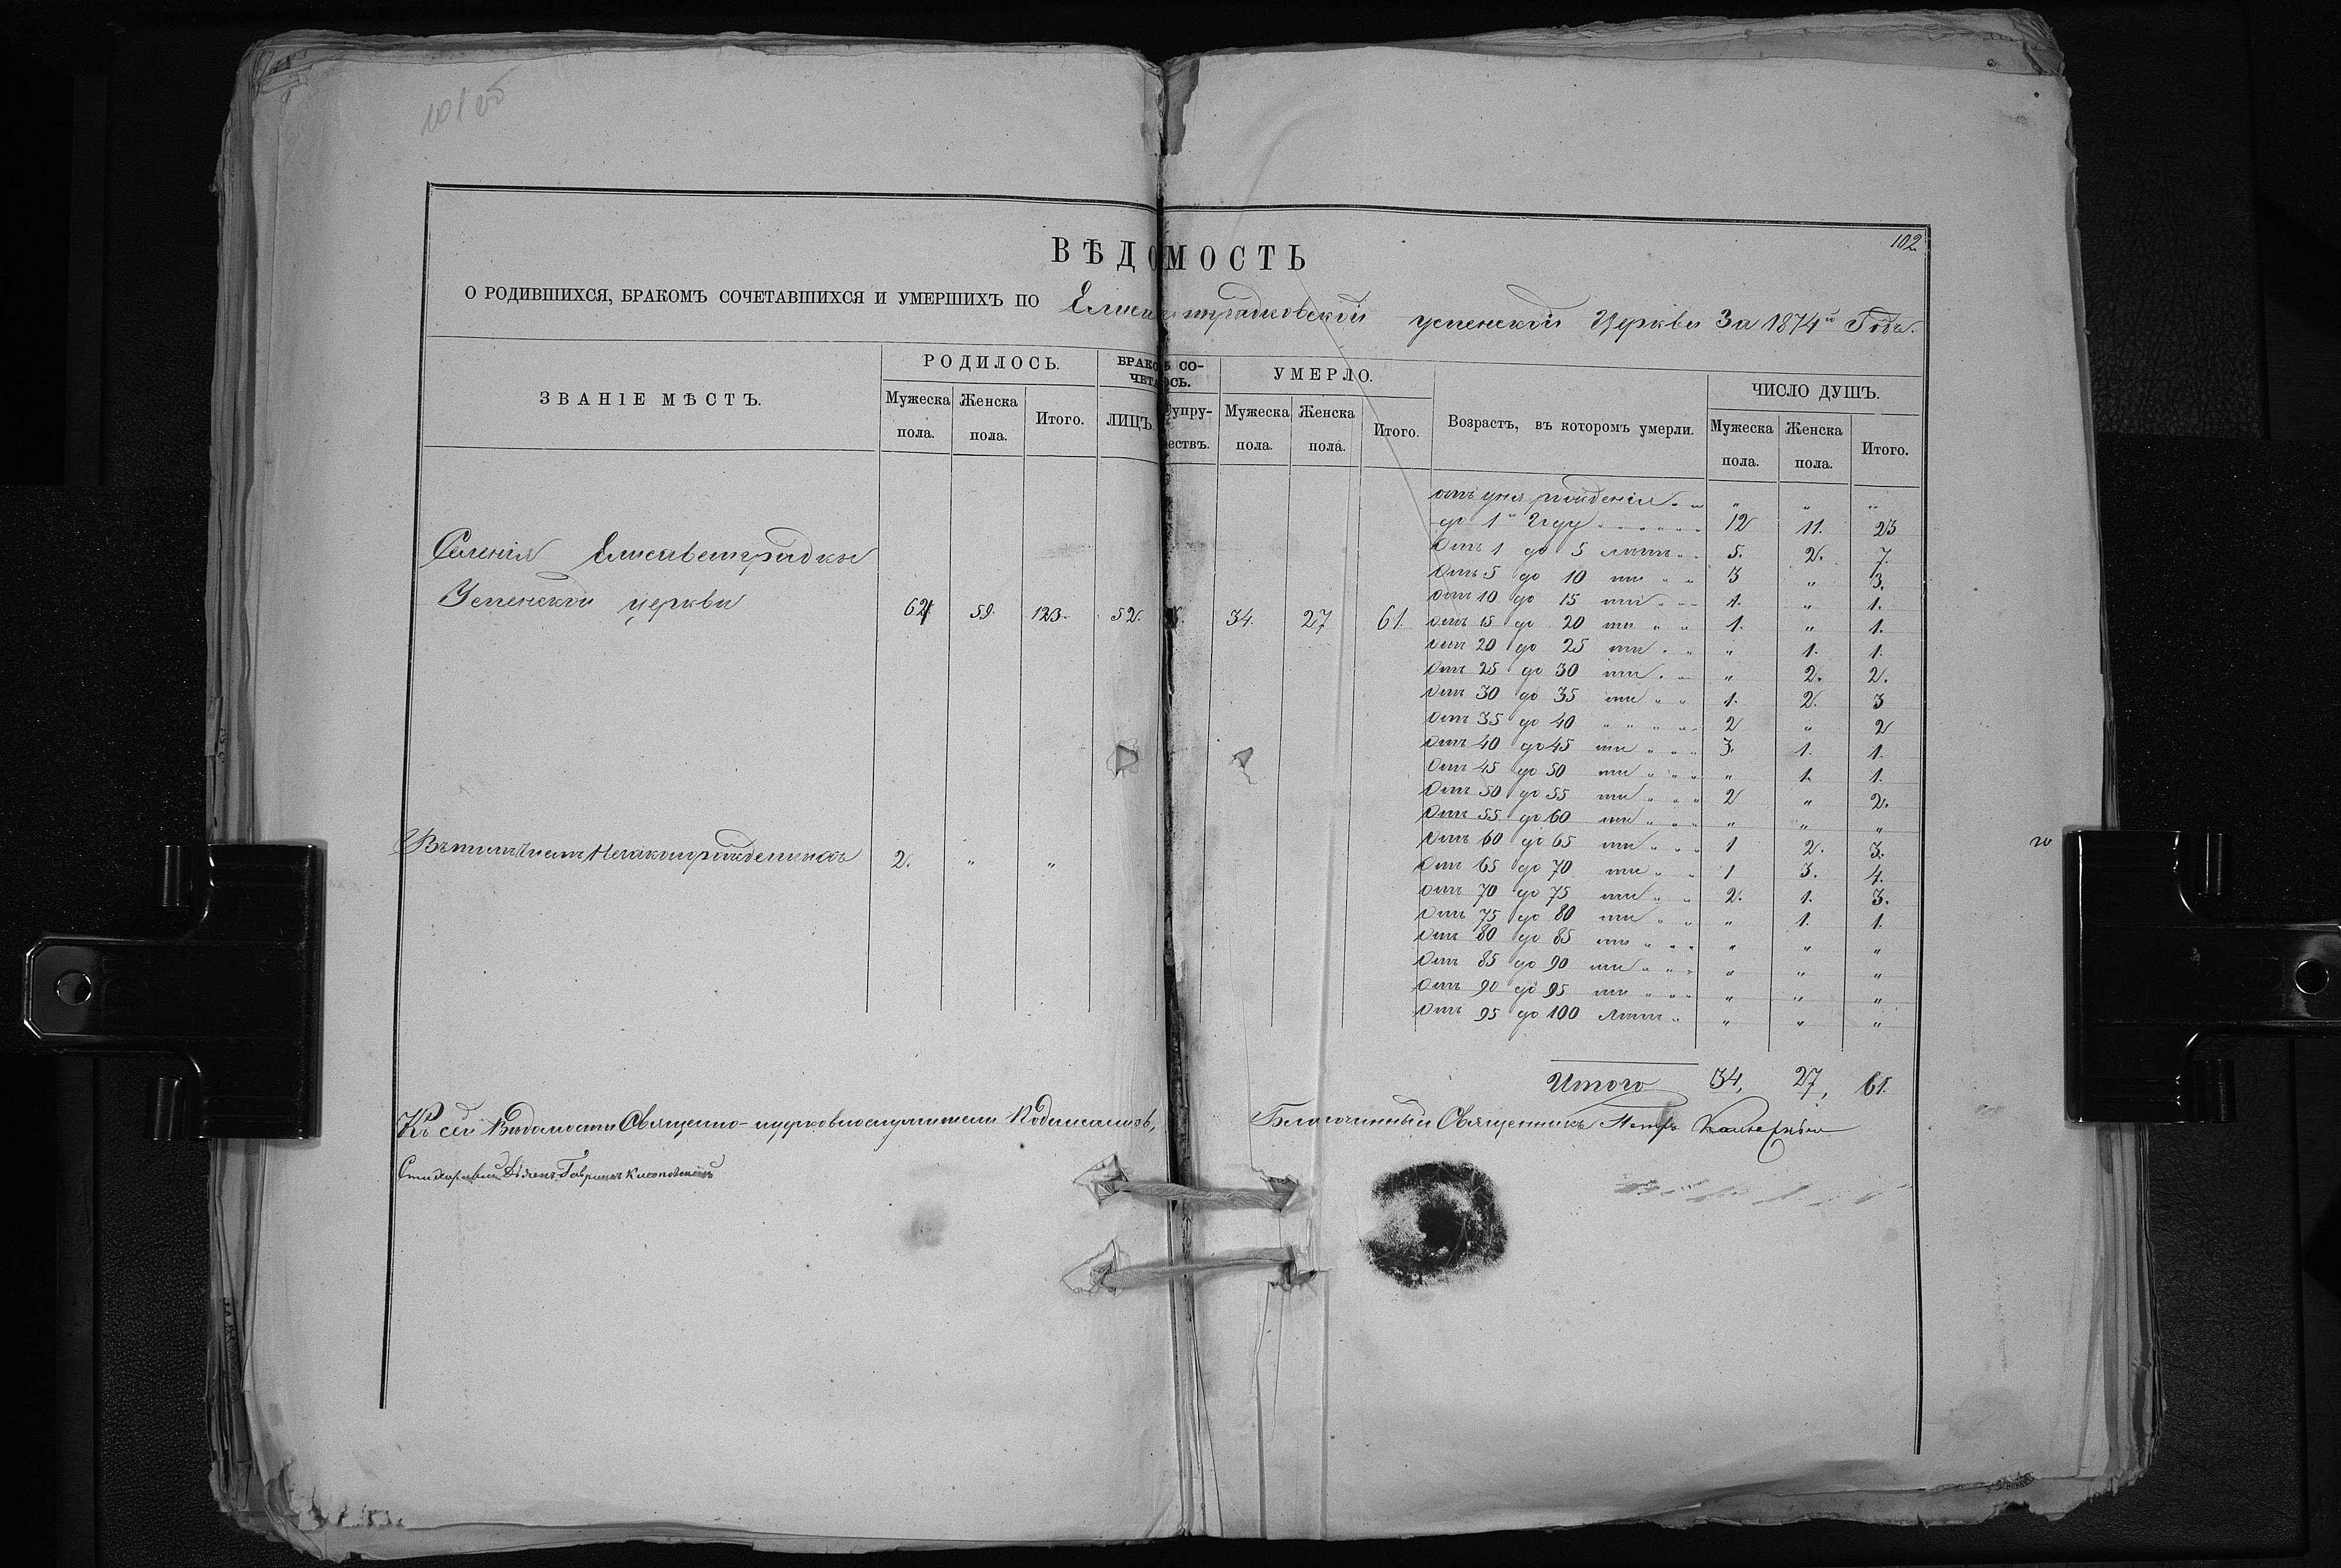 101 об
102
ВѢДОМОСТЬ
О РОДИВШИХСЯ, БРАКОМЪ СОЧЕТАВШИХСЯ И УМЕРШИХЪ ПО Елисаветградковской успенской Церкви За 1874й Годъ.
ЗВАНІЕ МѢСТЪ.
РОДИЛОСЬ.
Мужеска пола.
Женска пола.
Итого.
БРАКОМЪ СО-
ЧЕТАЛОСЬ.
ЛИЦЪ.
Супру-
жествъ.
УМЕРЛО.
Мужеска пола.
Женска пола.
Итого.
Возрастъ, въ которомъ умерли.
ЧИСЛО ДУШЪ.
Мужеска пола.
Женска пола.
Итого.
Селенія Елисаветградки
Успенской церкви 59. 123. 52. 34. 27 61.
Въ томъ числѣ Незаконнорожденныхъ 2. " "
отъ дня рожденія " " "
до 1й году 12 11. 23
Отъ 1 до 5 лѣтъ 5. 2. 7.
Отъ 5 до 10 ти 3 " 3.
Отъ 10 до 15 ти 1. " 1.
отъ 15 до 20 ти 1. " 1.
Отъ 20 до 25 ти " 1. 1.
Отъ 25 до 30 ти " 2. 2.
Отъ 30 до 35 ти 1. 2. 3
Отъ 35 до 40 " 2 " 2
Отъ 40 до 45 ти 3. 1. 1.
Отъ 45 до 50 ти " 1. 1.
Отъ 50 до 55 ти 2 " 2.
Отъ 55 до 60 ти " " "
Отъ 60 до 65 ти 1 2. 3.
Отъ 65 до 70 ти 1 3. 4.
Отъ 70 до 75 ти 2. 1. 3.
Отъ 75 до 80 ти " 1. 1.
Отъ 80 до 85 ти " " "
Отъ 85 до 90 ти " " "
Отъ 90 до 95 ти " " "
Отъ 95 до 100 лѣтъ " " "
Итого 34, 27, 61.
Къ сей Вѣдомости Священно-церковнослужители Подписались,
Стихарный Дьячекъ Гавриилъ
Благочинный Священникъ Петръ